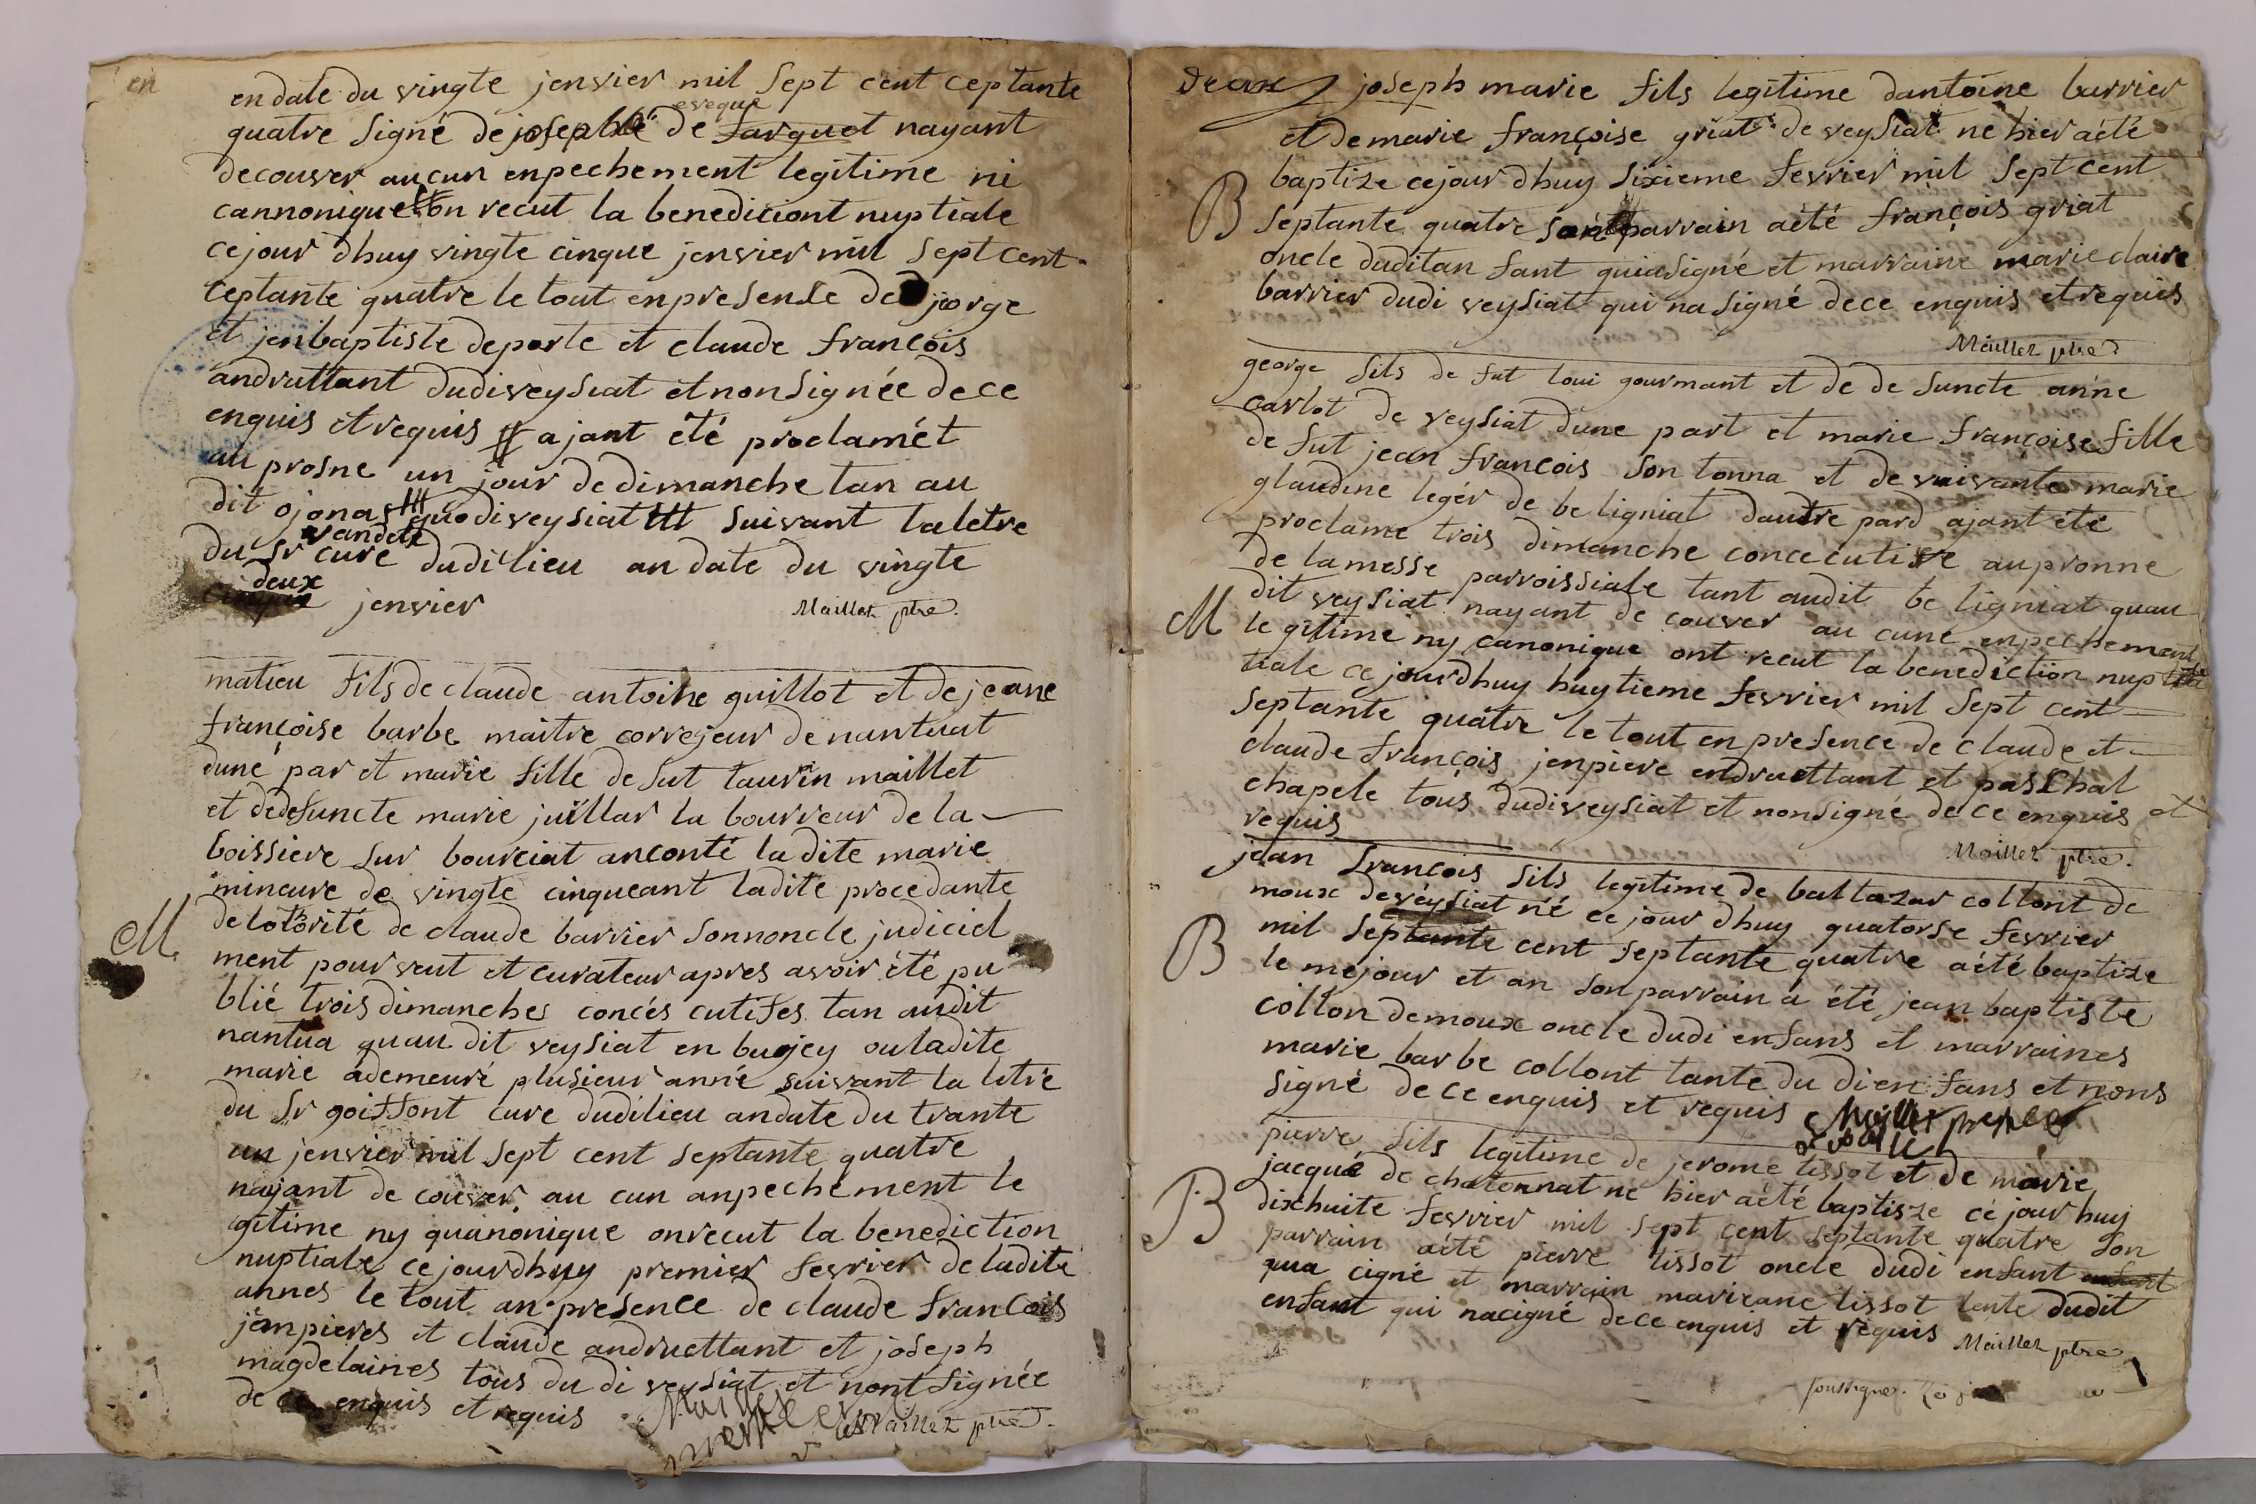 en
en date du vingte jenvier mil sept cent ceptante
eveque
quatre signé de joseph de farguet nayant
decouver aucun enpechement legitime ni
cannonique on recut la benediciont nuptiale
ce jour dhuy vingte cinque jenvier mil sept cent
ceptante quatre le tout en presense de jorge
et jenbaptiste deporte et claude francois
andruttant dudi veysiat et non signée de ce
enquis et requis ajant été proclamét
au prosne un jour de dimanche tan au
dit ojonas quodi veysiat suivant la letre
vandete
du sr cure dudi lieu an date du vingte
deux
jenvier Maillet ptre.
matieu fils de claude antoine guillot et de jeane
françoise barbe maitre correjeur de nantuat
dune par et marie fille de fut taurin maillet
et de defuncte marie juillar la bourreur de la
boissiere sur bourciat anconté la dite marie
mineure de vingte cinqueant ladite procedante
de lotorité de claude barrier sonnoncle judiciel
M.
ment pourveut et curateur apres avoir été pu
blié trois dimanches concés cutifes tan audit
nantua quau dit veysiat en bugey ou ladite
marie ademeuré plusieur année suivant la letre
du sr goiffont cure dudilieu andate du trante
un jenvier mil sept cent septante quatre
nayant de couver au cun anpechement le
gitime ny quanonique onrecut la benediction
nuptiale ce jourdhuy premier fevrier de ladite
annes le tout an presence de claude francois
jenpieres et claude andruettant et joseph
magdelaines tous du di veysiat et nont signée
de ce enquis et requis Maillet
Maillet ptre.
deux joseph marie fils legitime dantoine barrier
et de marie françoise griat de veysiat ne hier aété
baptize ce jour dhuy sixieme fevrier mil sept cent
B septante quatre son parrain aété françois griat
oncle duditan fant quiasigné et marraine marie claire
barrier dudi veysiat qui na signé dece enquis et requis
Maillet ptre
george fils de fut loui gourmant et de de functe anne
carlot de veysiat dune part et marie françoise fille
de fut jean francois son tonna et de vuivante marie
glaudine legér de be ligniat dautre pard ajant été
proclame trois dimanche concecutive au pronne
de la messe parroissiale tant audit be ligniat quau
dit veysiat nayant de couver au cune enpechement
M le gitime ny canonique ont recut la benediction nup
tiale ce jourdhuy huytieme fevrier mil sept cent
septante quatre le tout en presence de claude et
claude françois jenpiere endruettant et paschal
chapele tous dudi veysiat et non signe de ce enquis et
requis Maillet ptre.
jean francois fils legitime de baltazar collont de
moux de veysiat né ce jour dhuy quatorse fevrier
B mil septante cent septante quatre aété baptize
le mejour et an son parrain a été jean baptiste
collon demoux oncle dudi enfans et marraines
marie barbe collont tante du di en fans et nons
signé de ce enquis et requis Maillet
pierre fils legitime de jerome tissot et de marie
jacqué de chatonnat ne hier aété baptisze cé jour huy
B dixhuite fevrier mil sept cent septante quatre son
parrain aété pierre tissot oncle dudi enfant enfant
qua cigné et marrain marieane tissot tente dudit
enfant qui nacigné dece enquis et requis Maillet ptre